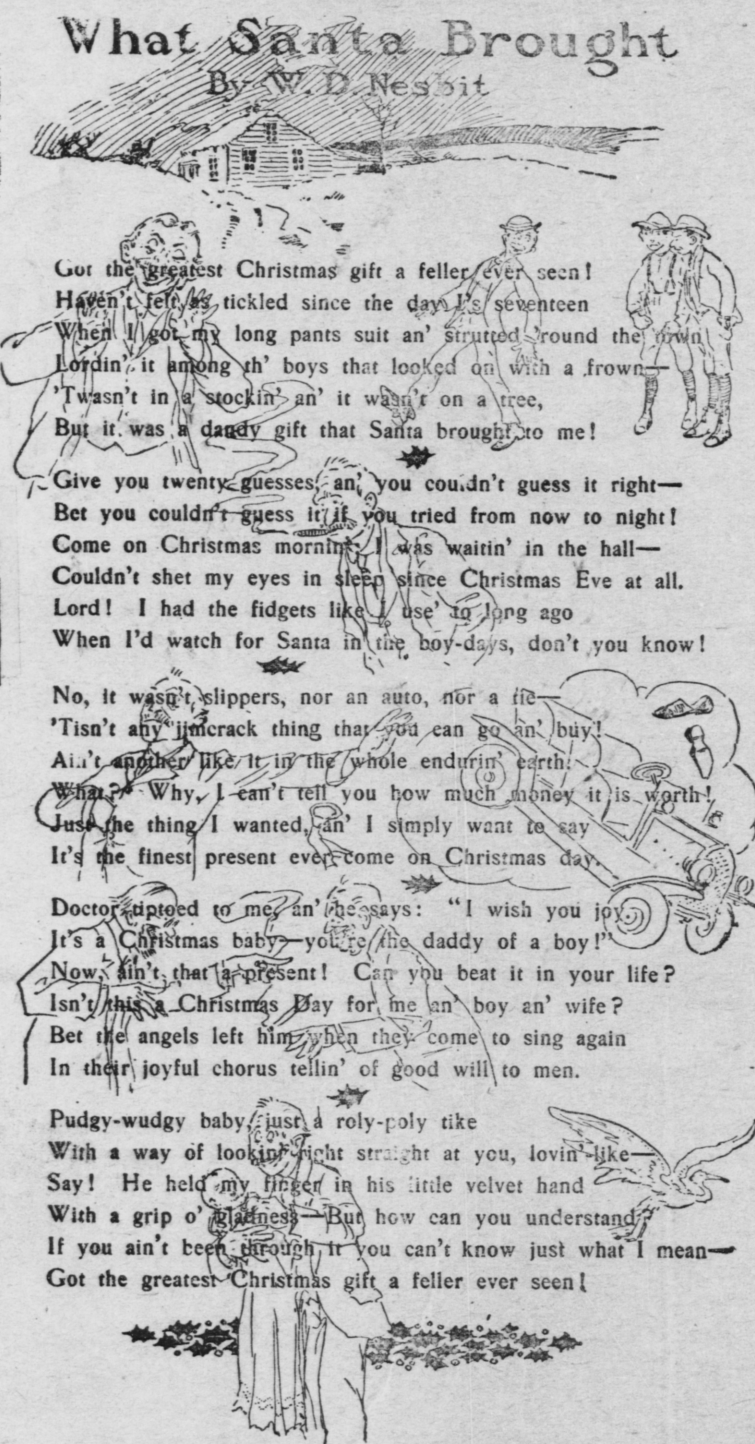 What Santa Brought
By W. D. Nesbit
Got the greatest Christmas gift a feller ever seen!
Haven't felt as tickled since the day I's seventeen
When I got my long pants suit an' strutted 'round the town
Lordin' it among th' boys that looked on with a frown—
'Twasn't in a stockin' an' it wasn't on a tree,
But it was a dandy gift that Santa brought to me!
Give you twenty guesses, an' you couldn't guess it right—
Bet you couldn't guess it if you tried from now to night!
Come on Christmas mornin'; I was waitin' in the hall—
Couldn't shet my eyes in sleep since Christmas Eve at all.
Lord! I had the fidgets like I use' to long ago
When I'd watch for Santa in the boy-days, don't you know!
No, it wasn't slippers, nor an auto, nor a tie—
'Tisn't any jimcrack thing that you can go an' buy!
Ain't another like it in the whole endurin' earth!
What? Why, I can't tell you how much money it is worth!
Just the thing I wanted, an' I simply want to say
It's the finest present ever come on Christmas day.
Doctor tiptoed to me, an' he says: "I wish you joy
It's a Christmas baby—you're the daddy of a boy!"
Now, ain't that a present! Can you beat it in your life?
Isn't this a Christmas Day for me an' boy an' wife?
Bet the angels left him when they come to sing again
In their joyful chorus tellin' of good will to men.
Pudgy-wudgy baby, just a roly-poly tike
With a way of lookin' right straight at you, lovin'-like—
Say! He held my finger in his little velvet hand
With a grip o' gladness—But how can you understand?
If you ain't been through it you can't know just what I mean—
Got the greatest Christmas gift a feller ever seen!